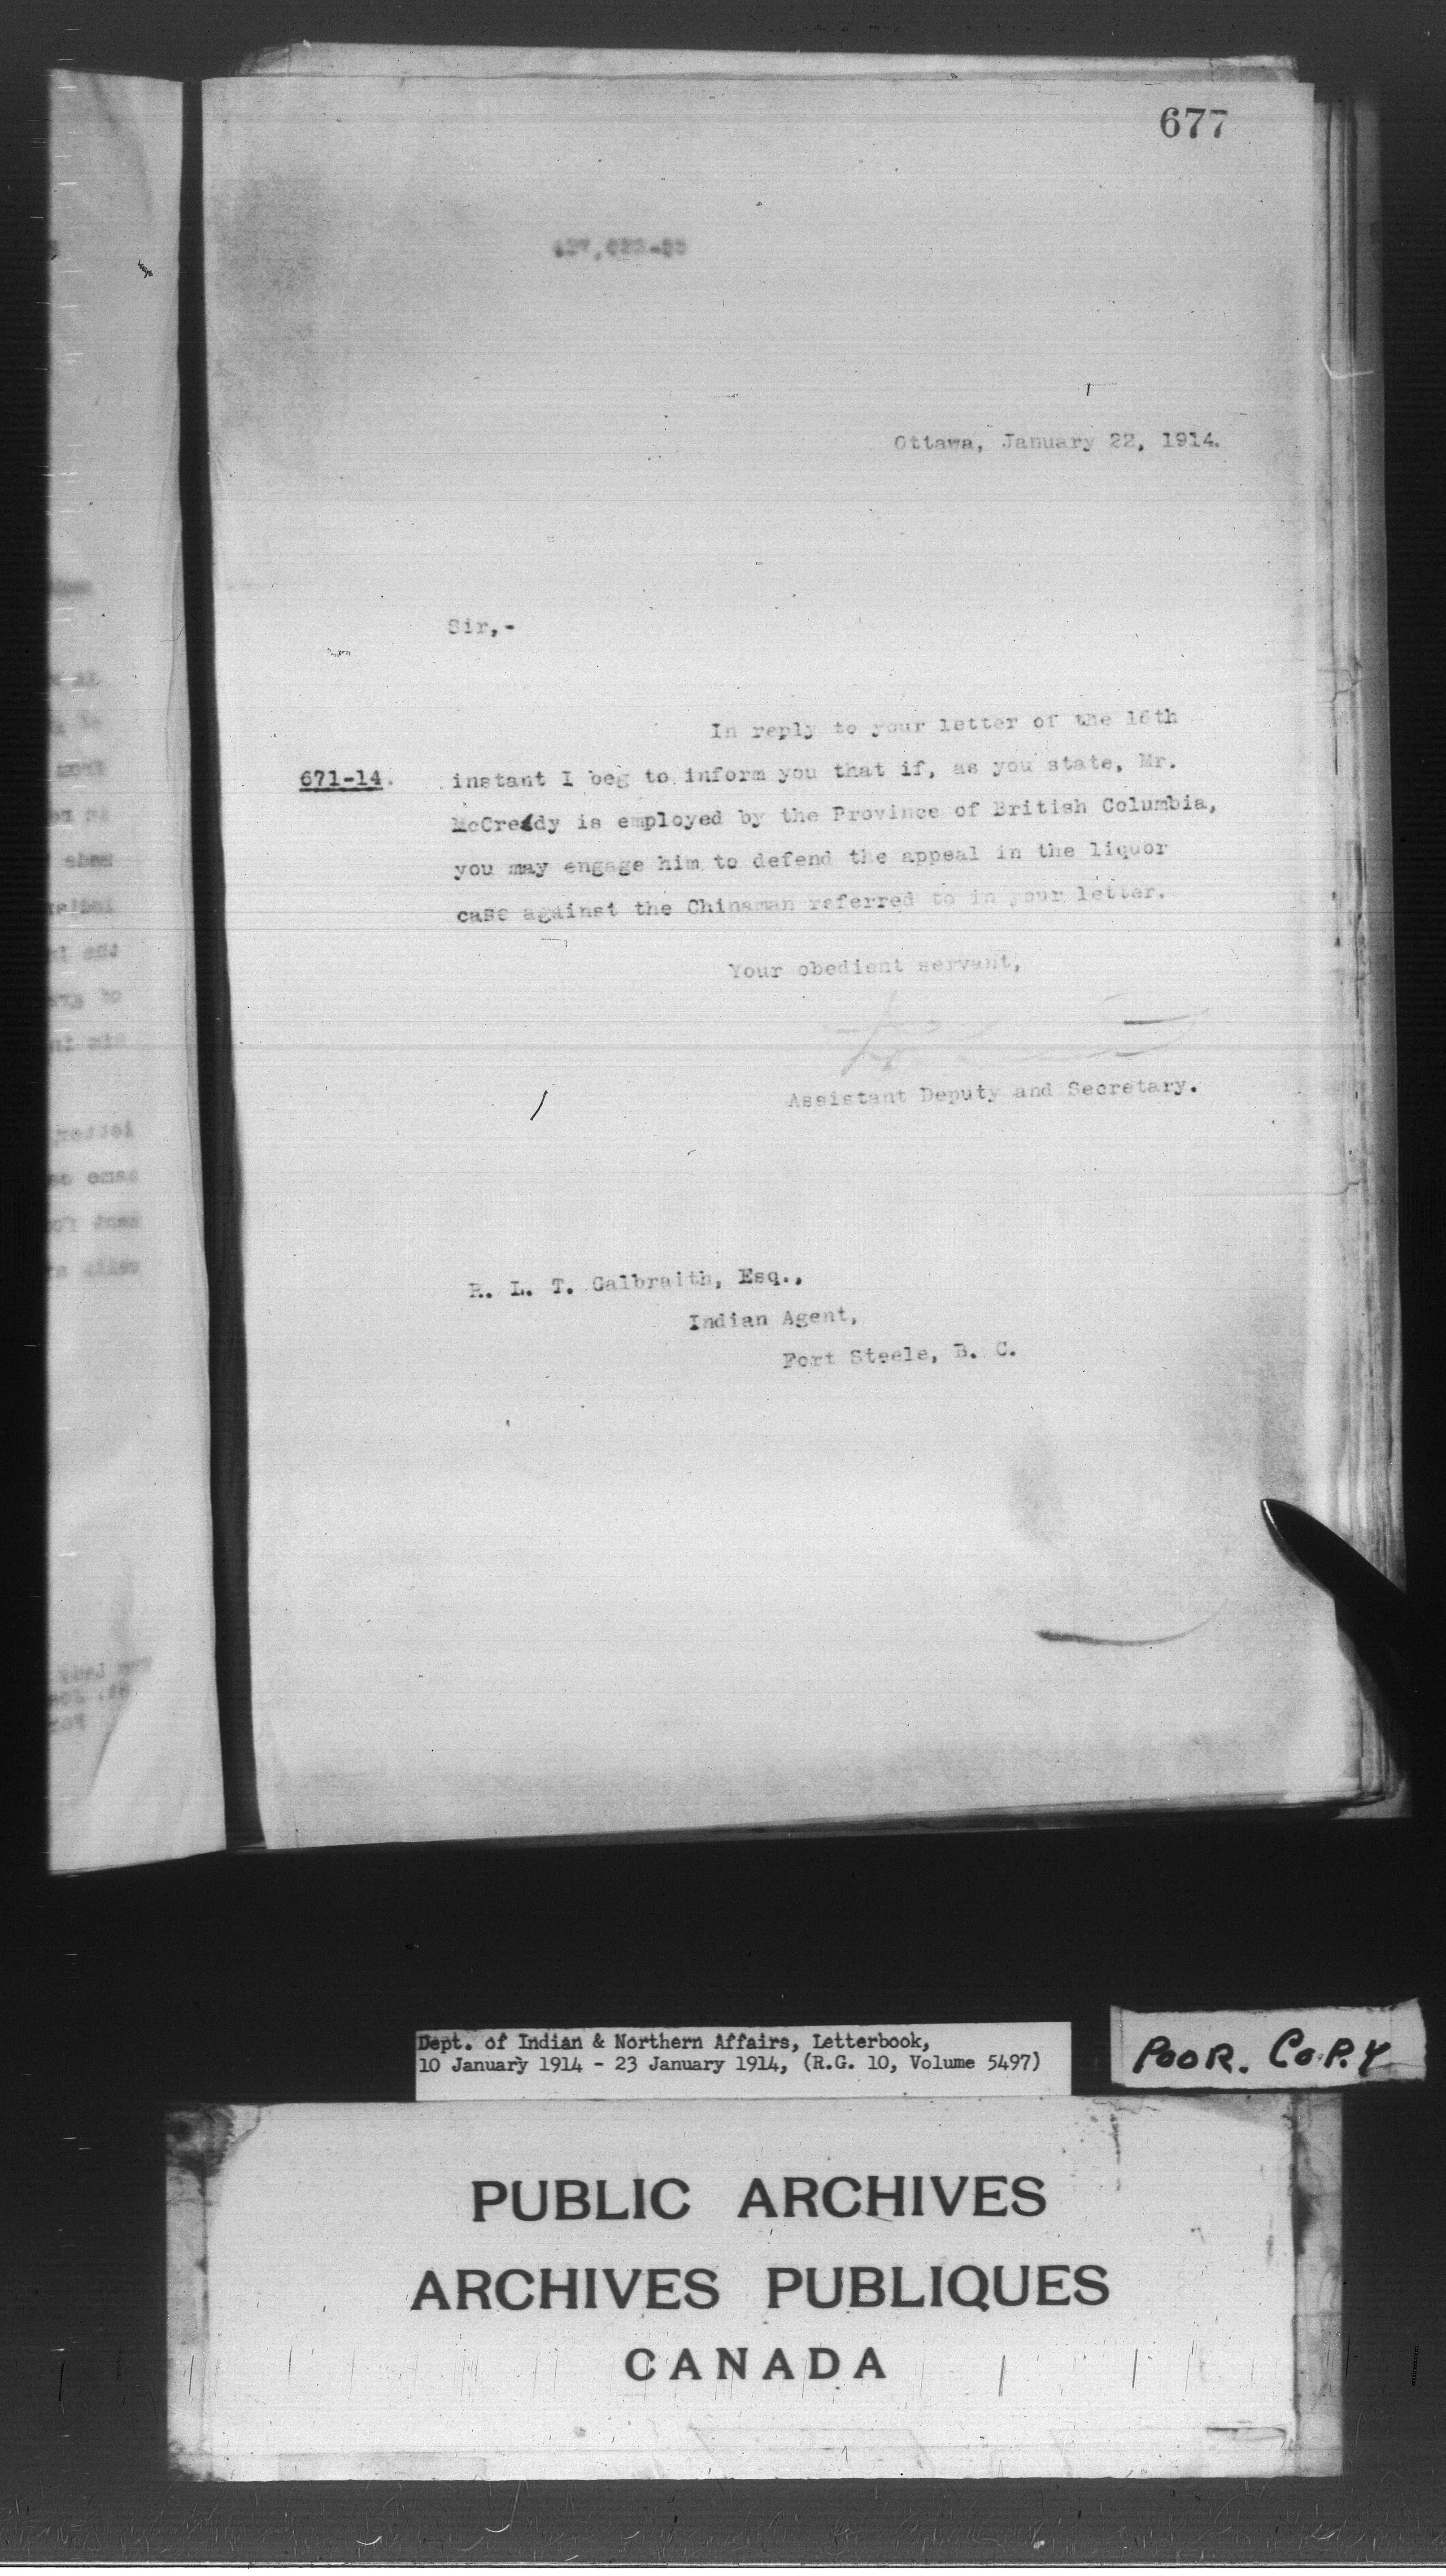 677
Ottawa, January 22, 1914.
Sir,-
In reply to your letter of the 16th
671-14. instant I beg to inform you that if, as you state, Mr.
McCreády is employed by the Province of British Columbia,
you may engage him to defend the appeal in the liquor
case against the Chinaman referred to in your letter.
Your obedient servant,
Assistant Deputy and Secretary.
R. L. T. Galbraith, Esq.,
Indian Agent,
Fort Steele, B. C.
Dept. of Indian & Northern Affairs, Letterbook,
10 January 1914 - 23 January 1914, (R.G. 10, Volume 5497)
POOR. COPY
PUBLIC ARCHIVES
ARCHIVES PUBLIQUES
CANADA